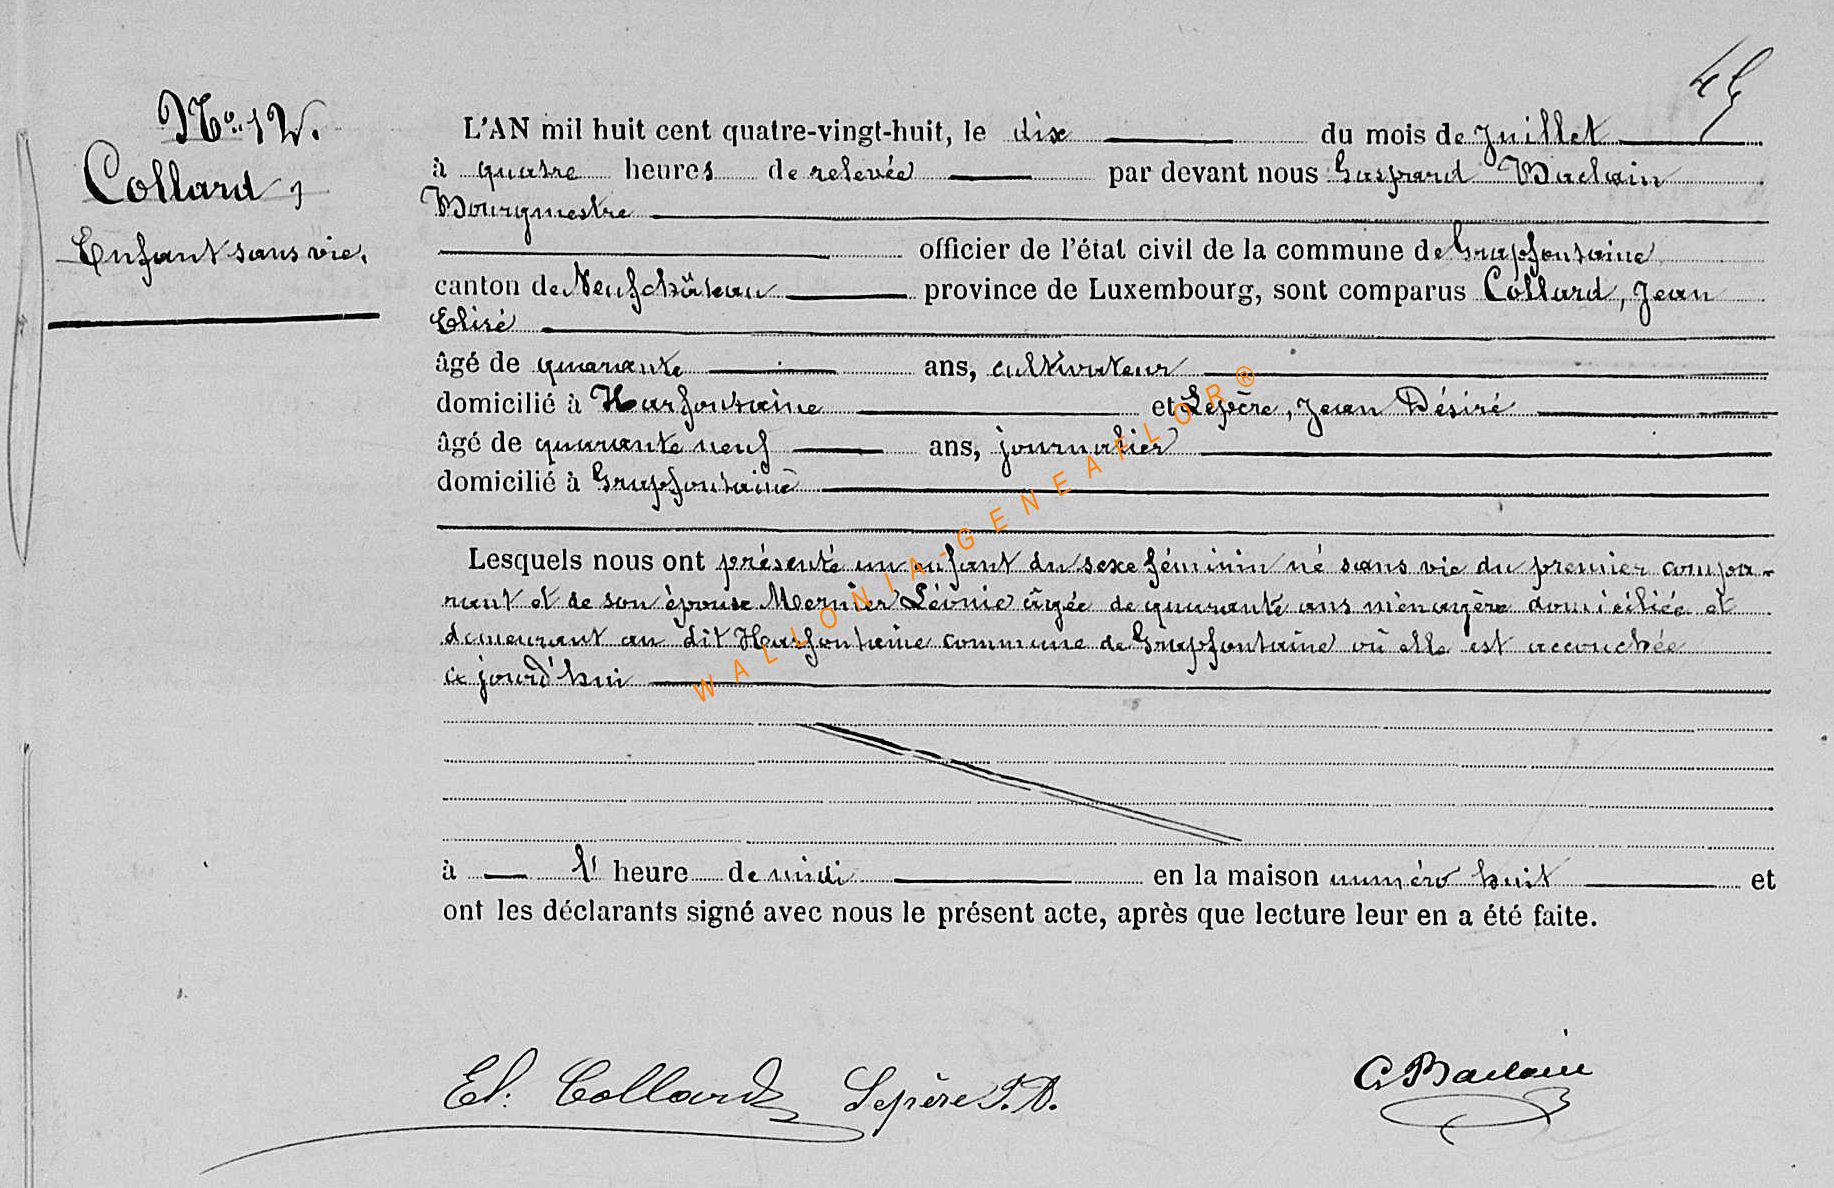 45
No. 12.
Collard,
Enfant sans vie.
L'AN mil huit cent quatre-vingt-huit, le dix du mois de Juillet
à quatre heures de relevée par devant nous Gaspard Baclain
Bourgmestre
officier de l'état civil de la commune de Grapfontaine
canton de Neufchâteau province de Luxembourg, sont comparus Collard, Jean
Elisé
âgé de quarante ans, cultivateur
domicilié à Harfontaine et Lepère, Jean Désiré
âgé de quarante neuf ans, journalier
domicilié à Grapfontaine
Lesquels nous ont présenté un enfant du sexe féminin né sans vie du premier compa-
rant et de son épouse Mernier Léonie âgée de quarante ans ménagère domiciliée et
demeurant au dit Harfontaine commune de Grapfontaine où elle est accouchée
ce jourd'hui
à l' heure de midi en la maison numéro huit et
ont les déclarants signé avec nous le présent acte, après que lecture leur en a été faite.
El. Collard Lepère J.D. G Baclain
WALLONIA-GENEAFLOR®